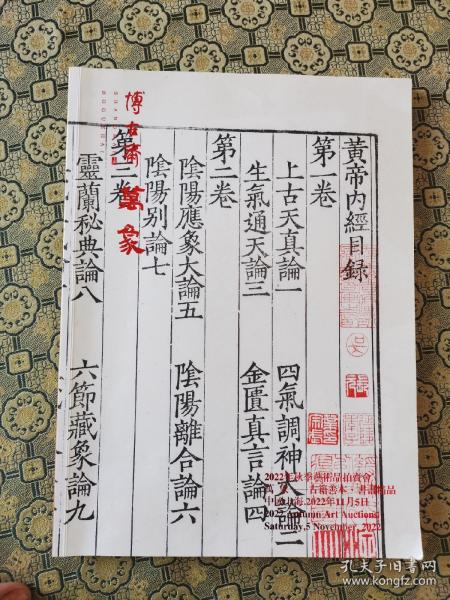 黃帝內經目録
第一卷
上古天真論一
四氣調神大論二
生氣通天論三
金匱真言論四
第二卷
陰陽應象大論五
陰陽離合論六
陰陽別論七
第三卷
靈蘭秘典論八
六節藏象論九
博古齋
萬象
2022年秋季藝術品拍賣會
古籍善本·書畫精品
中國上海.2022年11月5日
2022 Autumn Art Auctions
Saturday,5 November, 2022
孔夫子旧书网
www.kongfz.com